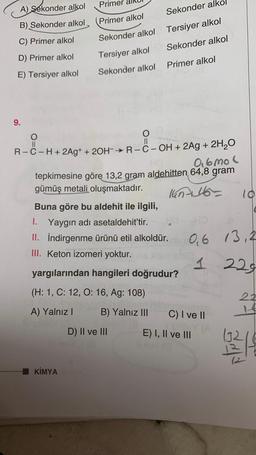 A) Sekonder alkol Primer alkol Sekonder alkol
B) Sekonder alkol Primer alkol Tersiyer alkol
C) Primer alkol Sekonder alkol Sekonder alkol
D) Primer alkol Tersiyer alkol
E) Tersiyer alkol Sekonder alkol Primer alkol
9.
O O
R – C – H + 2Ag⁺ + 2OH⁻ → R – C – OH + 2Ag + 2H₂O
0,6 mol
tepkimesine göre 13,2 gram aldehitten 64,8 gram
gümüş metali oluşmaktadır.
Buna göre bu aldehit ile ilgili,
I. Yaygın adı asetaldehit'tir.
II. İndirgenme ürünü etil alkoldür. 0,6 13,2
III. Keton izomeri yoktur.
1 22
yargılarından hangileri doğrudur?
(H: 1, C: 12, O: 16, Ag: 108)
22
A) Yalnız I B) Yalnız III C) I ve II
D) II ve III E) I, II ve III
132
12
12
KİMYA